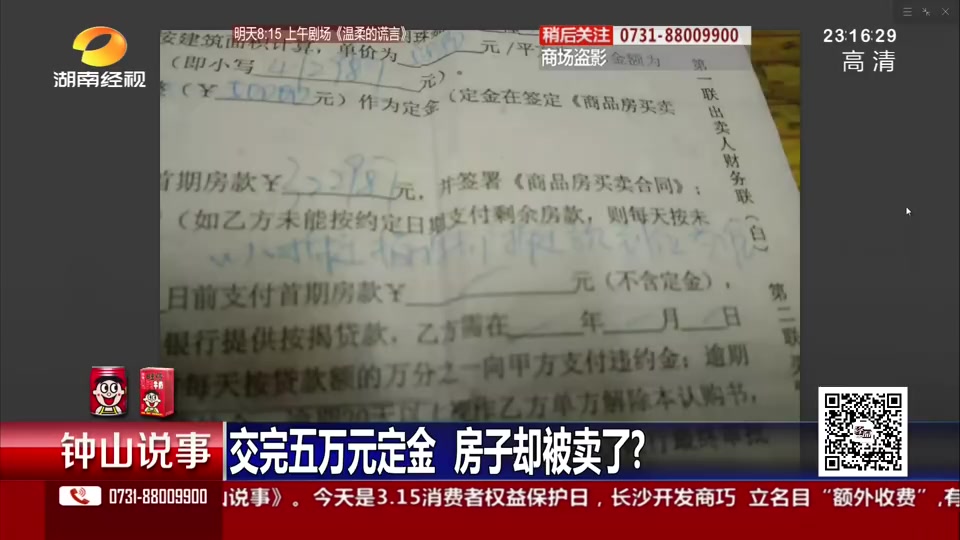 明天8:15 上午剧场《温柔的谎言》
稍后关注 0731-88009900
商场盗影
23:16:29
高清
湖南经视
按建筑面积计算，单价为 元/平
金额为
（即小写 元）。
（¥ 元）作为定金（定金在签定《商品房买卖
首期房款¥ 元，并签署《商品房买卖合同》；
（如乙方未能按约定日期支付剩余房款，则每天按未
日前支付首期房款¥ 元（不含定金），
银行提供按揭贷款，乙方需在 年 月 日
每天按贷款额的万分之一向甲方支付违约金；逾期
乙方单方解除本认购书，
第一联出卖人财务联（白）
第二联
钟山说事
交完五万元定金 房子却被卖了?
0731-88009900
说事》。今天是3.15消费者权益保护日，长沙开发商巧 立名目“额外收费”,有